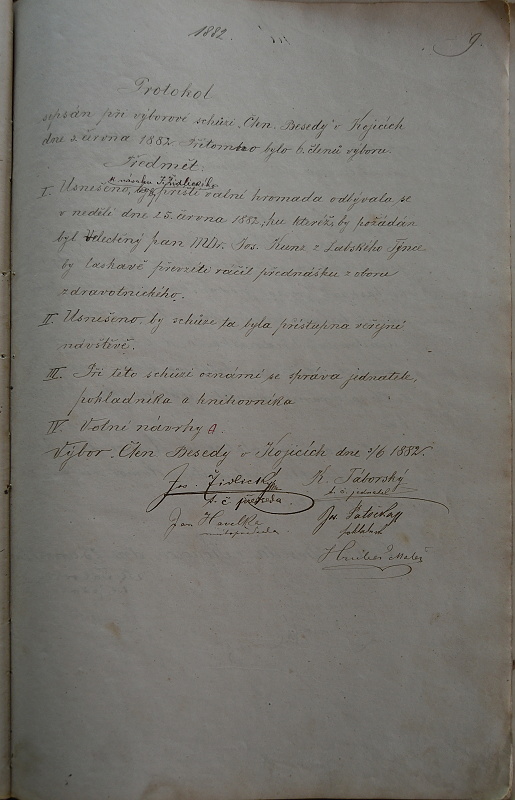 1882.
9.
Protokol
sepsán při výborové schůzi „Čten. Besedy" v Kojicích
dne 3. června 1882. Přítomno bylo 6. členů výboru.
Předmět.
K návrhu J. Židlického
I. Usnešeno, by příští valní hromada odbývala se
v neděli dne 25. června 1882; ku kteréž by požádán
byl Velectěný pan MDr. Jos. Kunz z Labského Týnce
by laskavě převzíti ráčil přednášku z oboru
zdravotnického.
II. Usnišeno, by schůze ta byla přístupna veřejné
návštěvě.
III. Při této schůzi oznámí se správa jednatele,
pokladníka a knihovníka
IV. Volní návrhy.
Výbor „Čten. Besedy v Kojicích dne 3/6 1882.
Jos. Židlický K. Táborský
t. č. předseda. t. č. jednatel
Jan Havelka Jos.
místopředseda pokladník